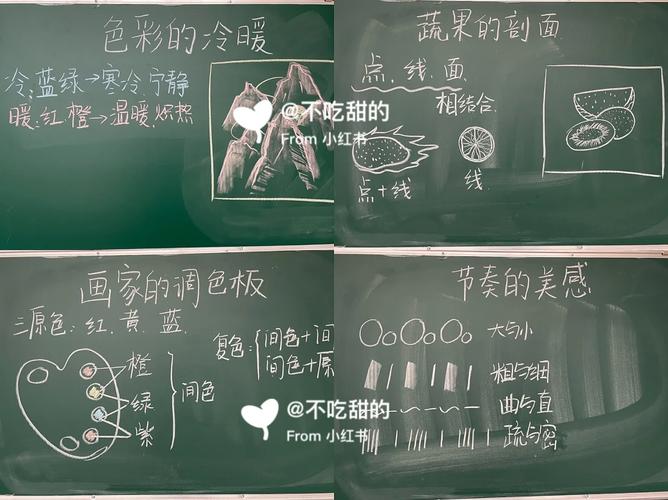 色彩的冷暖
冷:蓝绿→寒冷.宁静
暖:红.橙→温暖.炽热
@不吃甜的
From 小红书
蔬果的剖面
点.线.面
相结合
点+线
线
画家的调色板
三原色:红.黄.蓝.
橙
绿
紫
间色
复色:
间色+间
间色+原
@不吃甜的
From 小红书
节奏的美感
大与小
粗与细
曲与直
疏与密